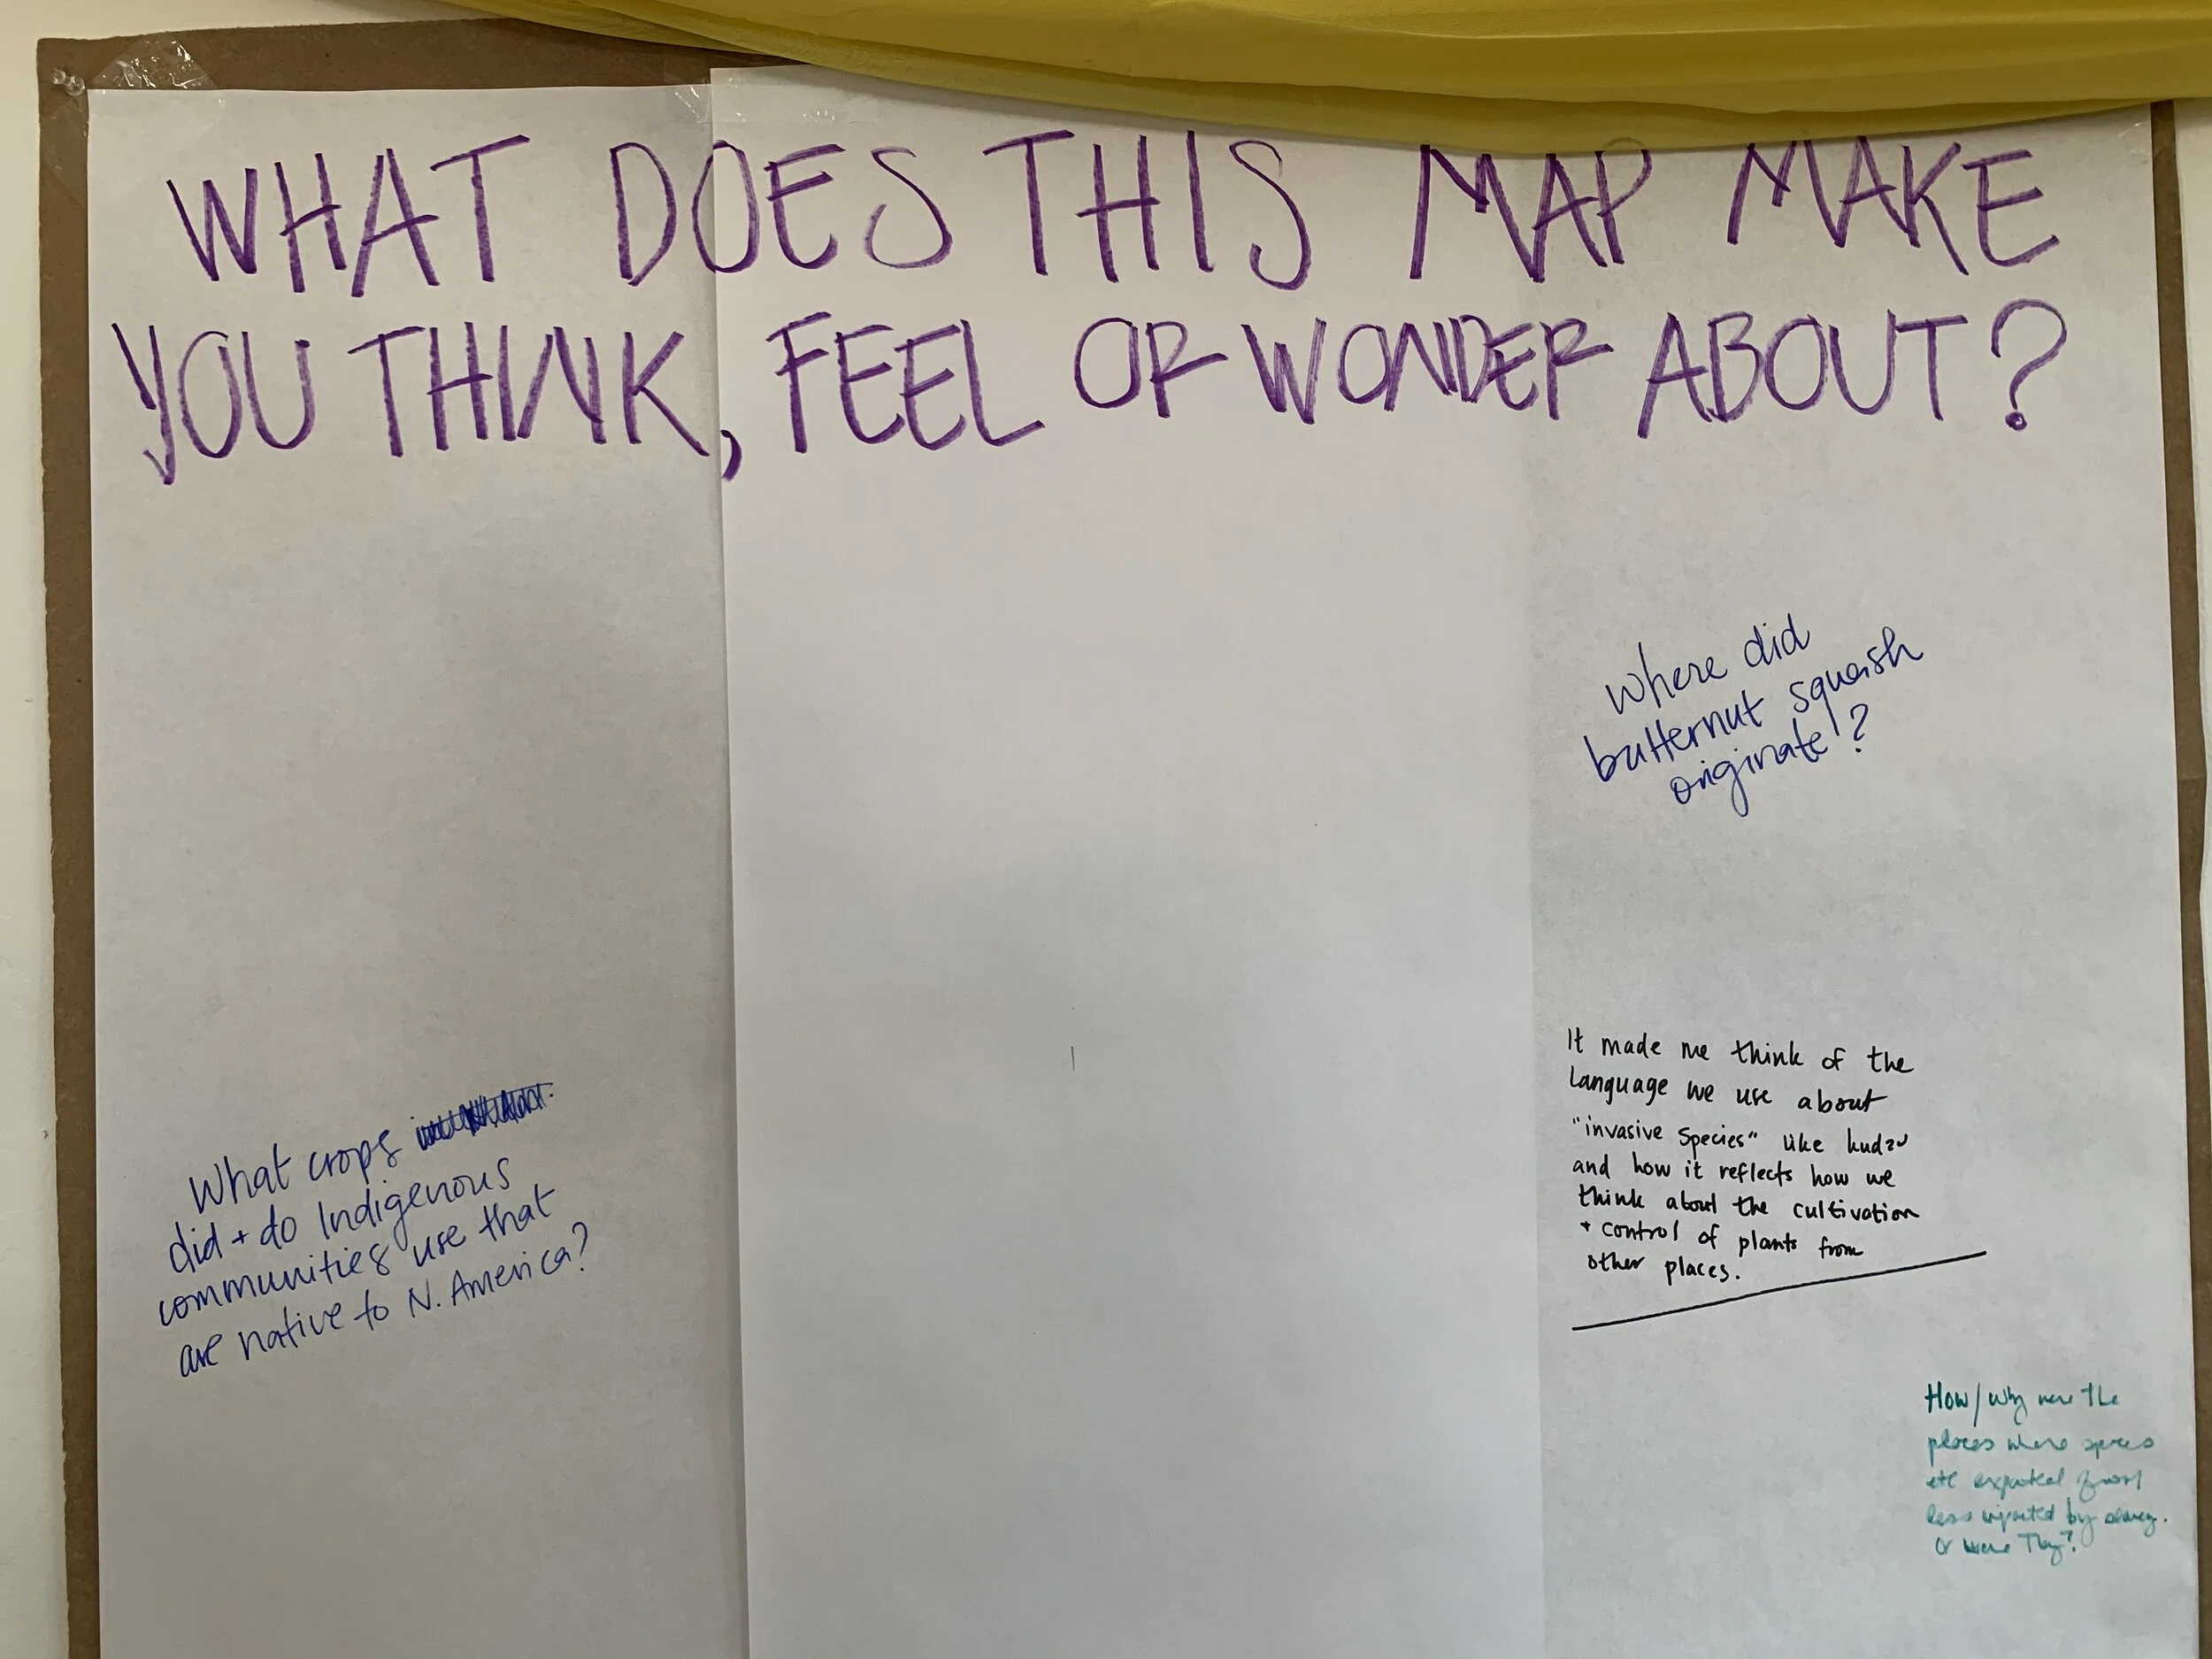 WHAT DOES THIS MAP MAKE
YOU THINK, FEEL OR WONDER ABOUT?
Where did
butternut squash
originate?
What crops
did + do Indigenous
communities use that
are native to N. America?
It made me think of the
language we use about
"invasive species" like kudzu
and how it reflects how we
think about the cultivation
+ control of plants from
other places.
How/Why were the
places where spices
etc exported from
less impacted by slavery.
Or were they?